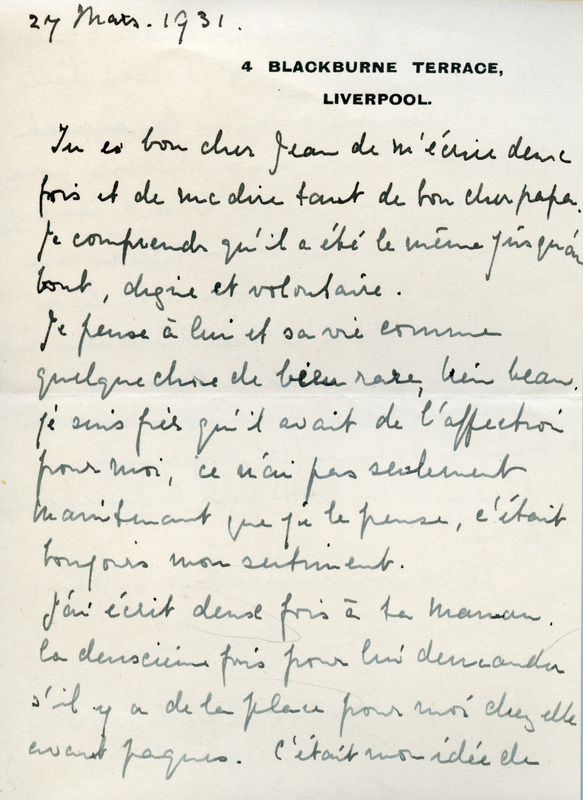 27 Mars. 1931.
4 BLACKBURNE TERRACE,
LIVERPOOL.
Tu es bon cher Jean de m'écrire deux
fois et de me dire tant de bon cher papa.
Je comprends qu'il a été le même jusqu'au
bout, digne et volontaire.
Je pense à lui et sa vie comme
quelque chose de bien rare, bien beau.
je suis fier qu'il avait de l'affection
pour moi, ce n'ai pas seulement
maintenant que je le pense, c'était
toujours mon sentiment.
J'ai écrit deux fois à ta Maman.
la deuxième fois pour lui demander
s'il y a de la place pour moi chez elle
avant paques. C'était mon idée de